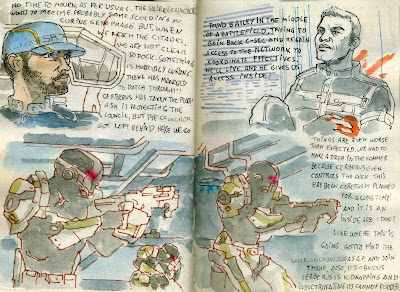 NO TIME TO MOURN, AS PER USUAL. THE SALARIAN COUNCILOR
WANTS TO MEET ME, PROBABLY SOME SCOLDING IN
CURING GENOPHAGE. BUT, WHEN
WE REACH THE CITADEL
WE ARE NOT CLEAR
TO DOCK. SOMETHING
IS HORRIBLY WRONG
THANE HAS MANAGED
TO PATCH THROUGH:
CERBERUS HAS TAKEN THE PLACE!
ASH IS PROTECTING THE
COUNCIL, BUT THE COUNCILOR
GOT LEFT BEHIND, HERE WE GO
FOUND BAILEY IN THE MIDDLE
OF A BATTLEFIELD, TRYING TO
GAIN BACK C-SEC AND REGAIN
ACCESS TO THE NETWORK TO
COORDINATE EFFECTIVES.
WE'LL LIVE AND HE GIVES US
ACCESS INSIDE.
THINGS ARE EVEN WORSE
THAN EXPECTED, WE HAD TO
MAKE A DROP IN THE HAMMER
BECAUSE CERBERUS EVEN
CONTROLS THE DOCK. THIS
HAS BEEN CAREFULLY PLANNED
FOR A LONG TIME
AND IT IS AN
INSIDE JOB, I DON'T
LIKE WHERE THIS IS
GOING. GOTTA FIND THE
SALARIAN COUNCILOR ASAP AND JOIN
THANE. ALSO, IT'S OBVIOUS
CERBERUS IS KIDNAPPING AND
INDOCTRINATING ITS CANNON FODDER